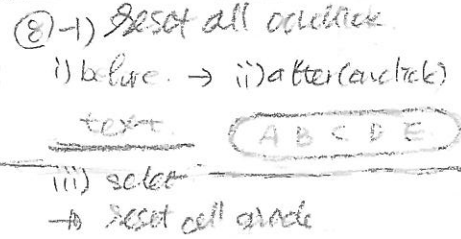 ⑧-1) Reset all onclick
i) before → ii) after (onclick)
text A B C D E
iii) select
→ reset all grade